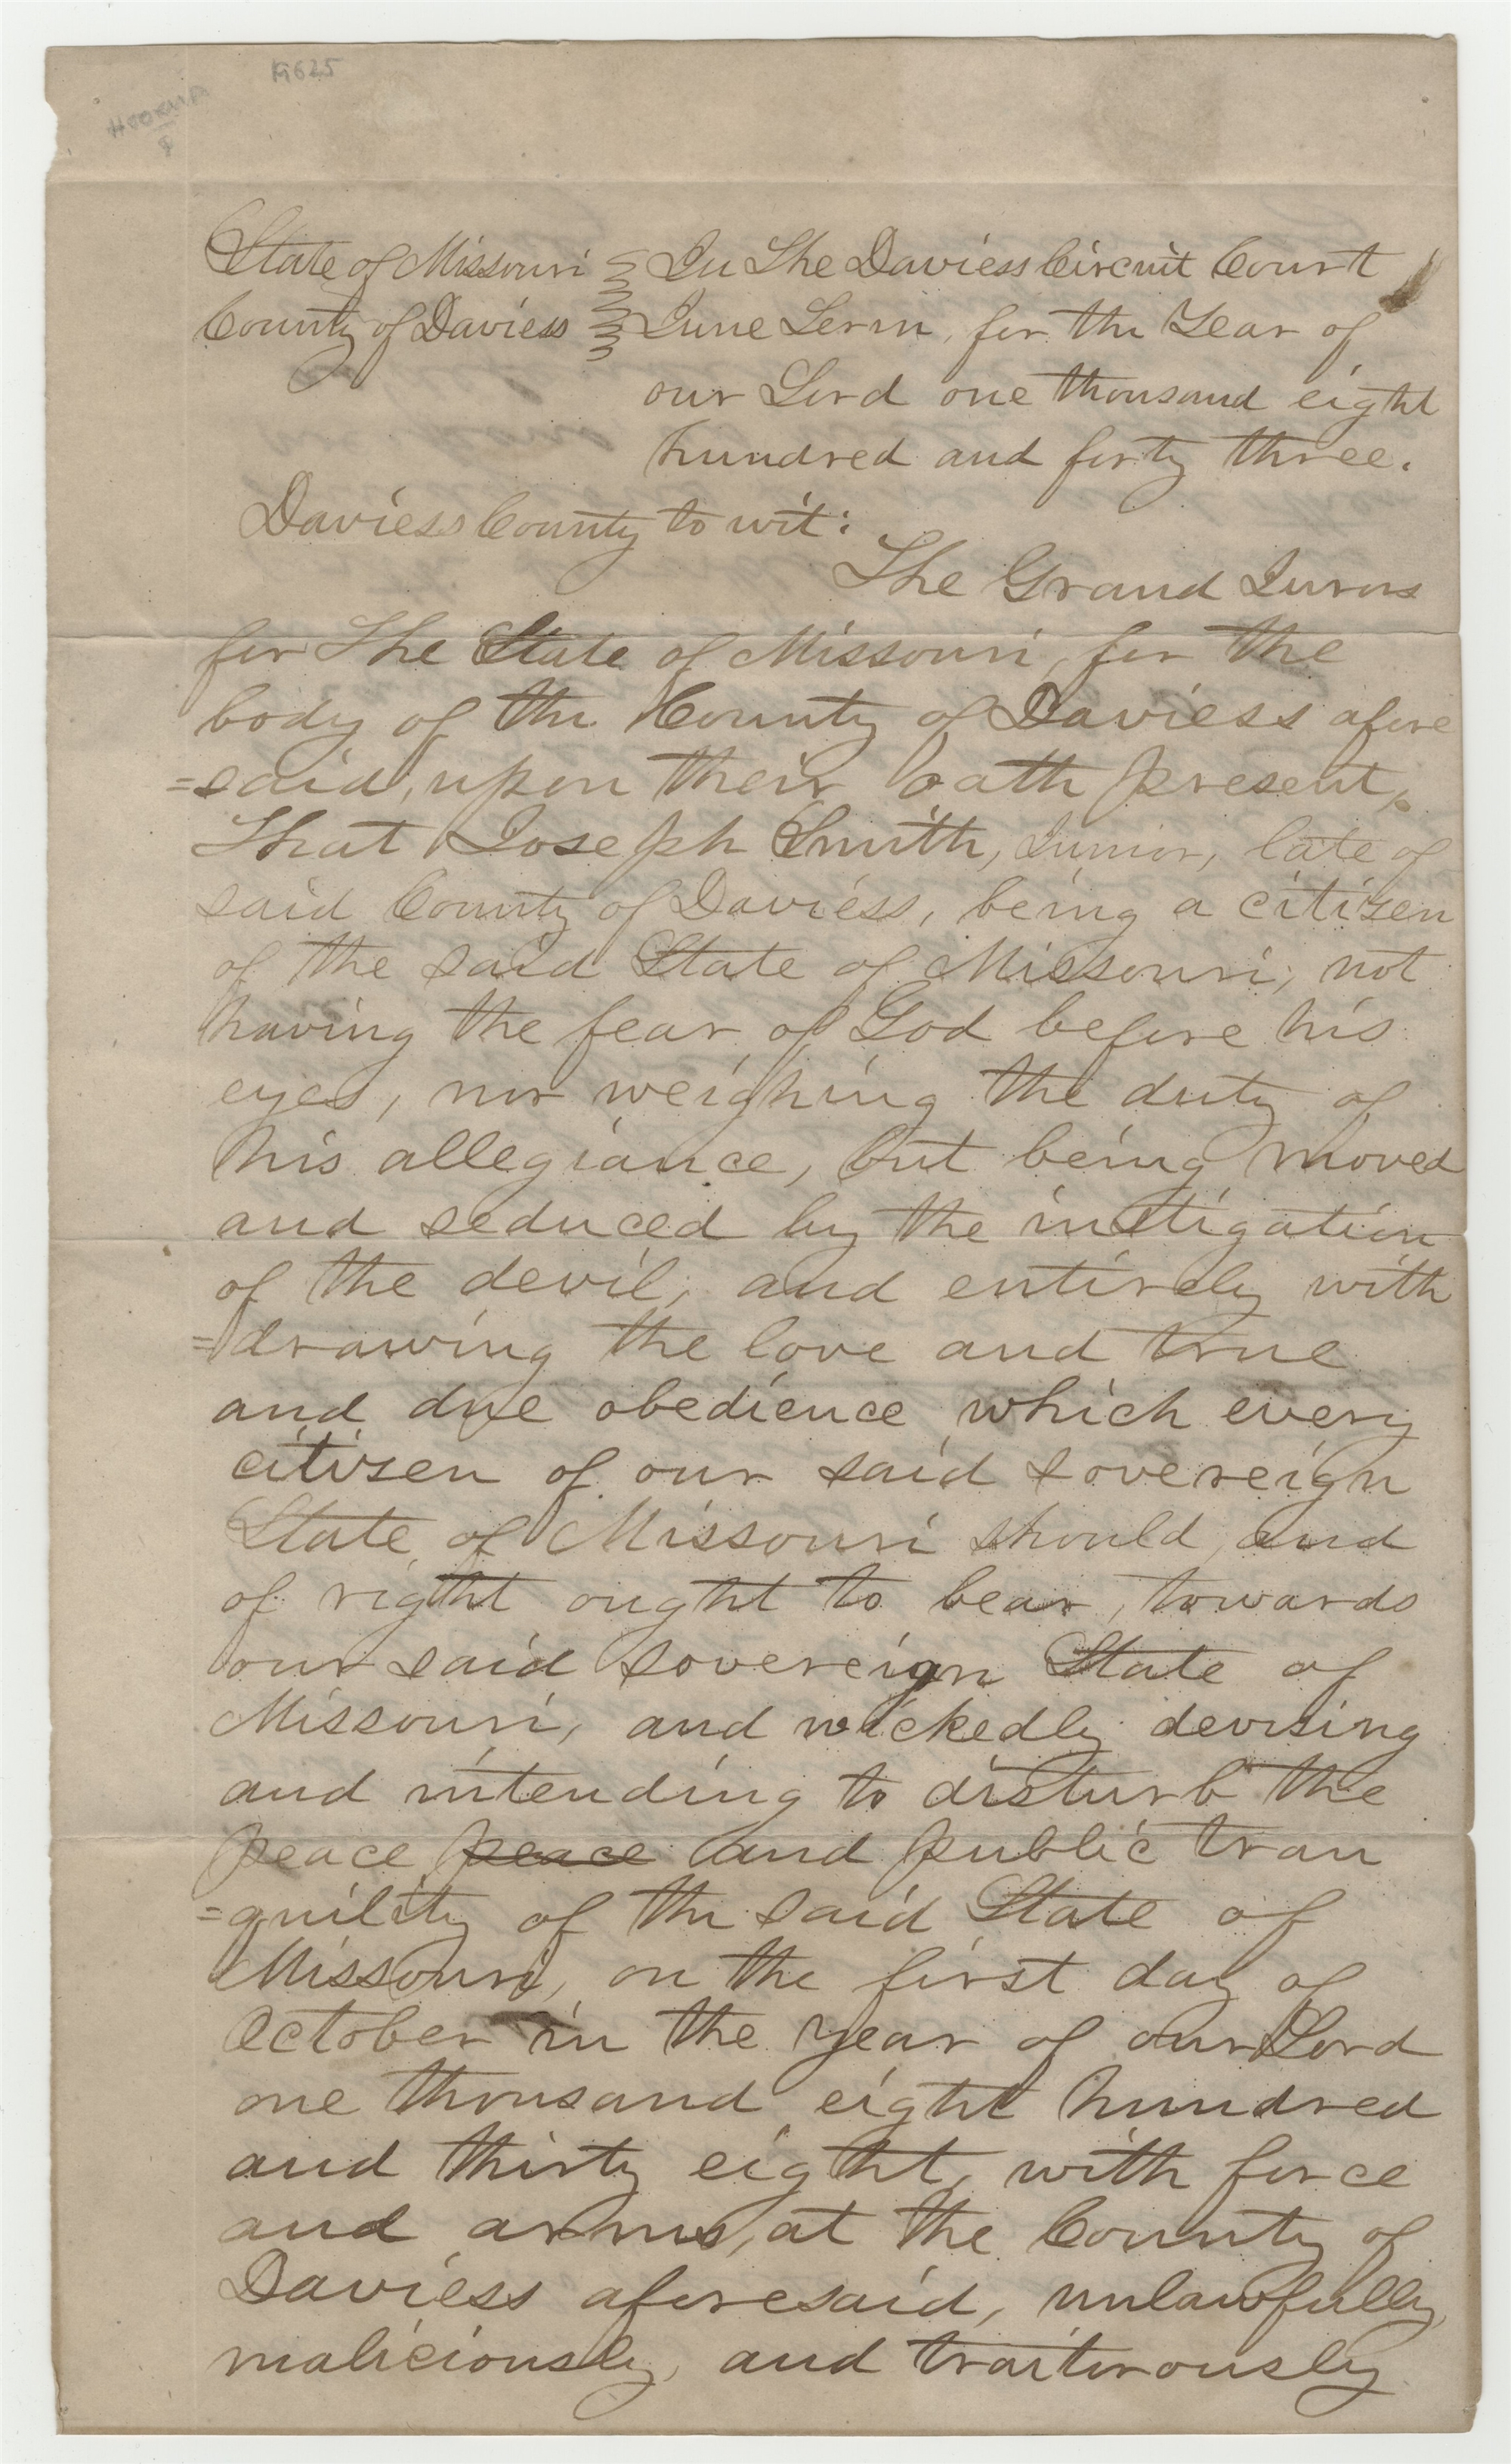 K625
State of Missouri In The Daviess Circuit Court
County of Daviess June Term, for the Year of
our Lord one thousand eight
hundred and forty three.
Daviess County to wit:
The Grand Jurors
for The State of Missouri, for the
body of the County of Daviess afore
=said, upon their oath present,
That Joseph Smith, Junior, late of
said County of Daviess, being a citizen
of the said State of Missouri, not
having the fear of God before his
eyes, nor weighing the duty of
his allegiance, but being moved
and seduced by the instigation
of the devil, and entirely with
=drawing the love and true
and due obedience which every
citizen of our said sovereign
State of Missouri should, and
of right ought to bear, towards
our said sovereign State of
Missouri, and wickedly devising
and intending to disturb the
peace peace and public tran
=quility of the said State of
Missouri, on the first day of
October in the year of our Lord
one thousand eight hundred
and thirty eight, with force
and arms, at the County of
Daviess aforesaid, unlawfully,
maliciously, and traitorously